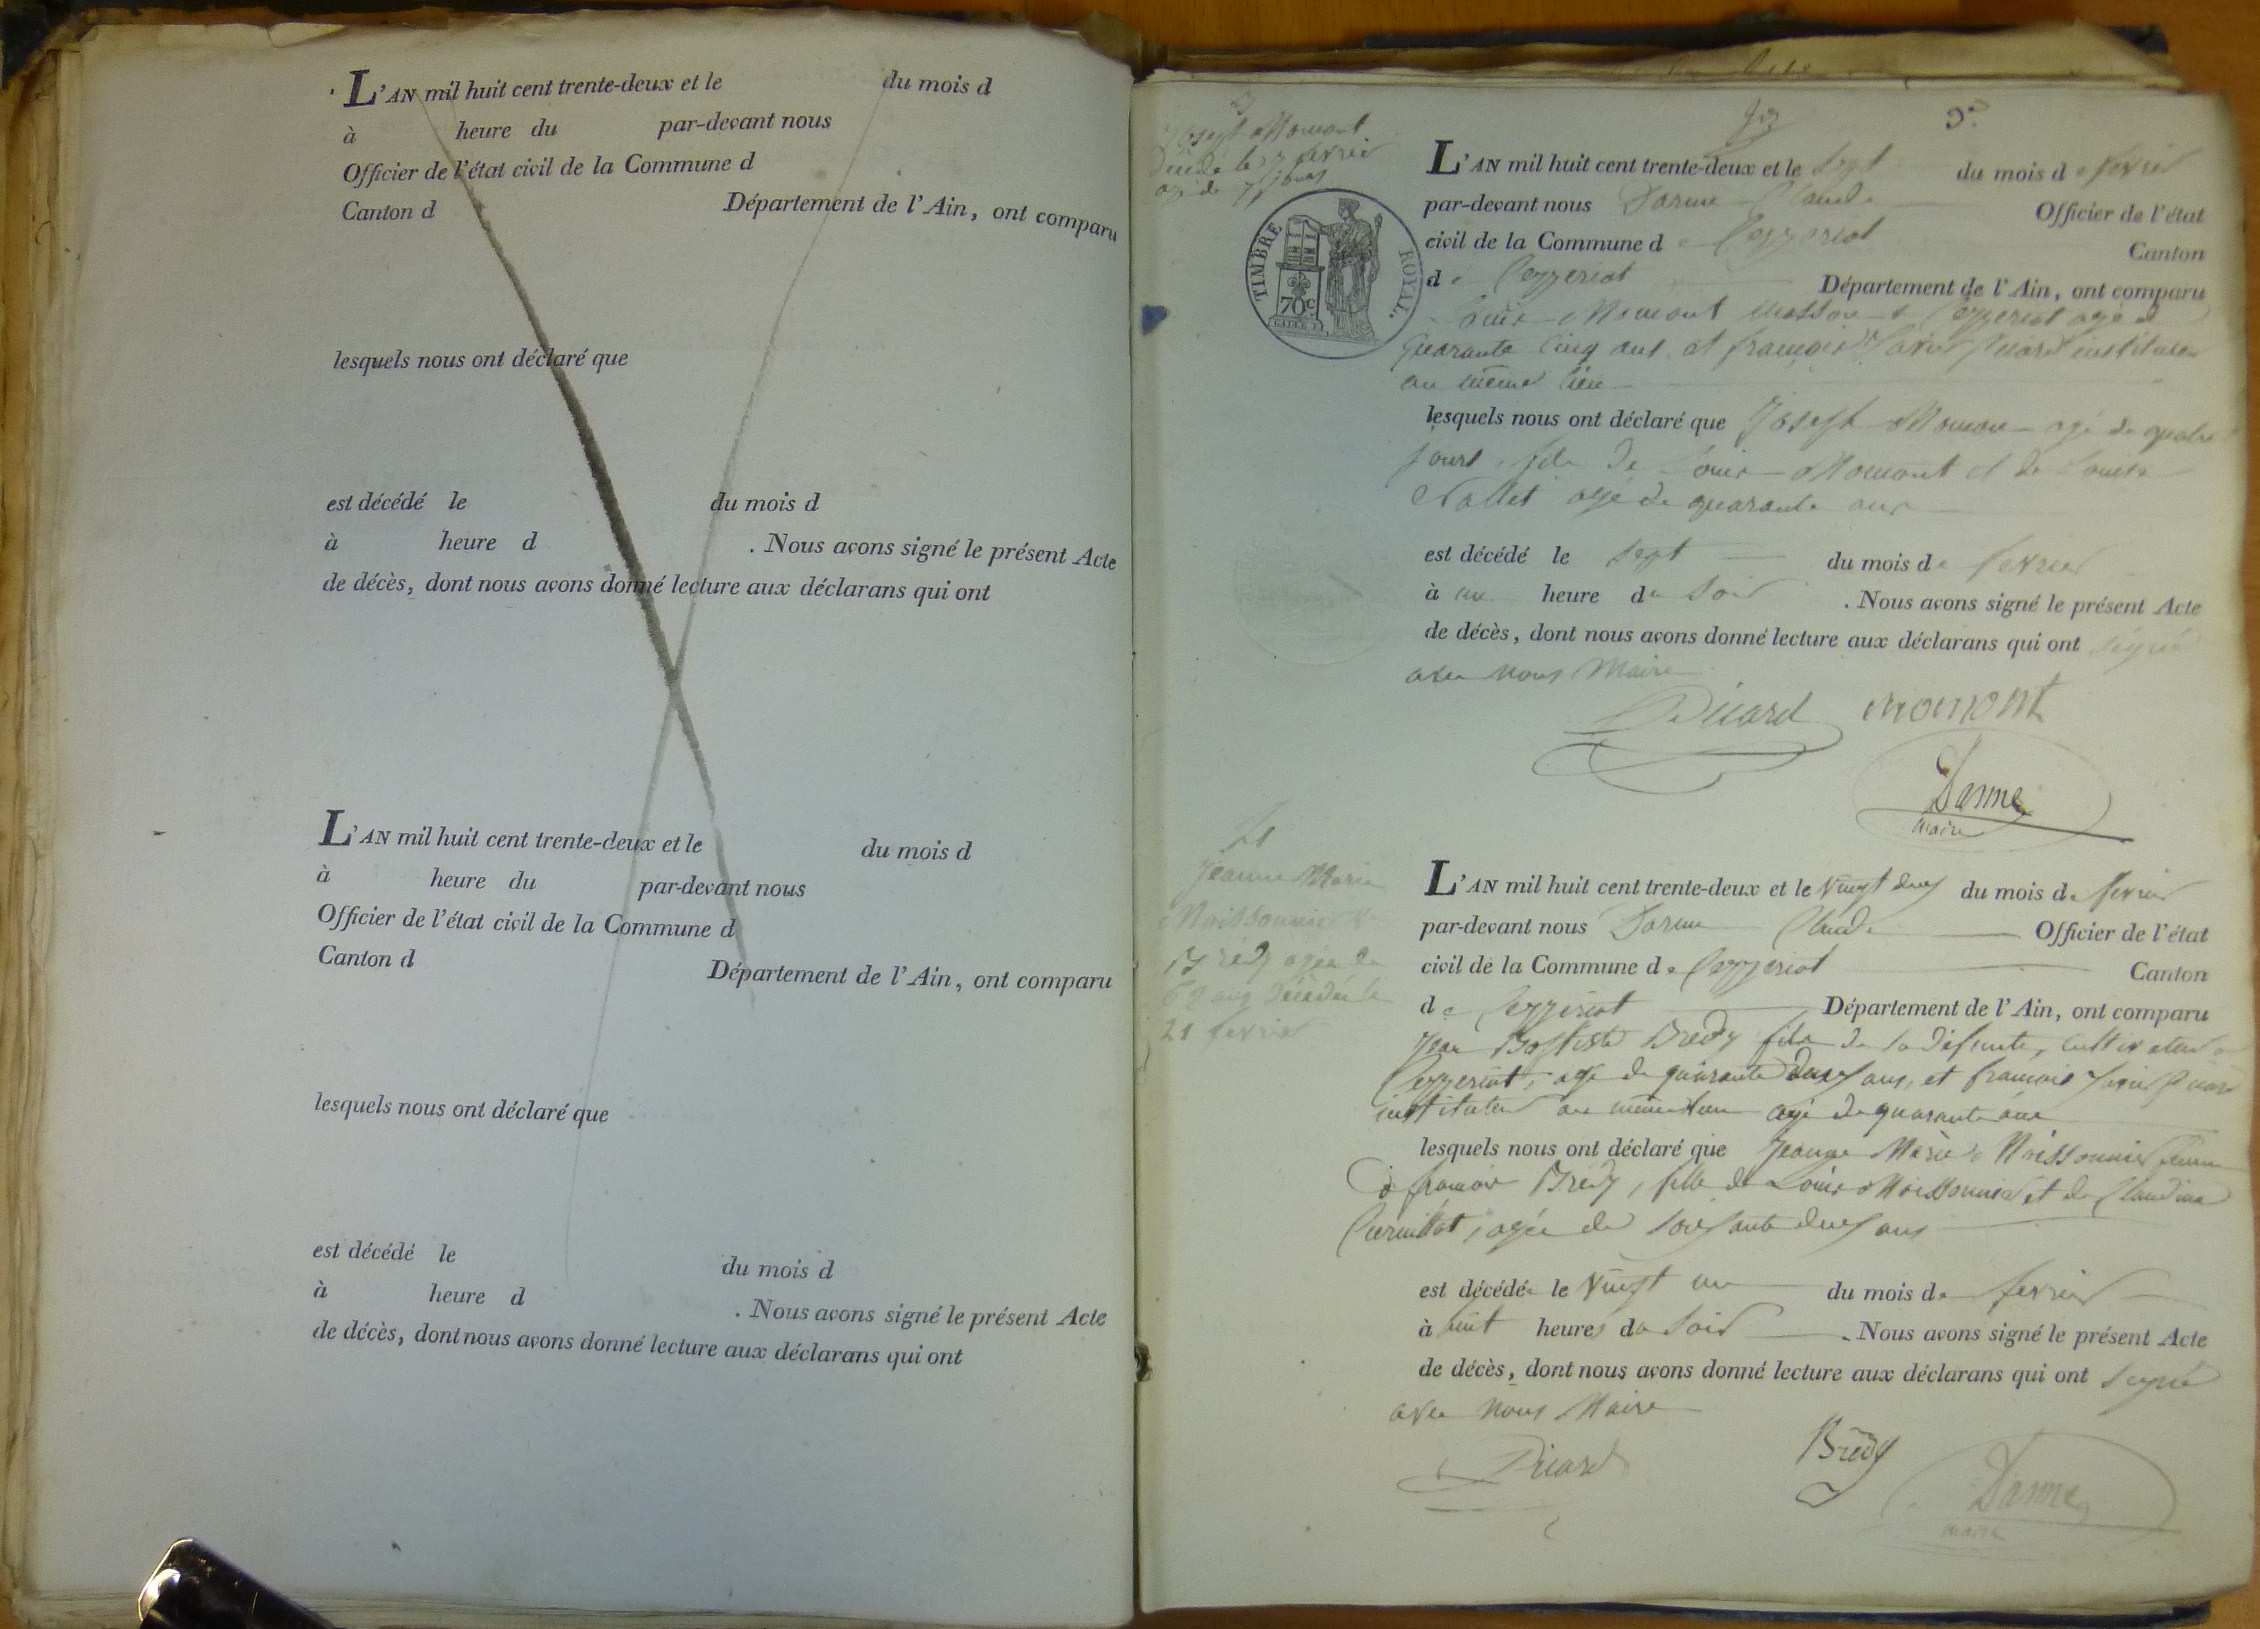 L'AN mil huit cent trente-deux et le du mois d
à heure du par-devant nous
Officier de l'état civil de la Commune d
Canton d Département de l'Ain, ont comparu
lesquels nous ont déclaré que
est décédé le du mois d
à heure d . Nous avons signé le présent Acte
de décès, dont nous avons donné lecture aux déclarans qui ont
L'AN mil huit cent trente-deux et le du mois d
à heure du par-devant nous
Officier de l'état civil de la Commune d
Canton d Département de l'Ain, ont comparu
lesquels nous ont déclaré que
est décédé le du mois d
à heure d . Nous avons signé le présent Acte
de décès, dont nous avons donné lecture aux déclarans qui ont
Joseph Momont
décédé le 7 fevrier
agé de jours
TIMBRE ROYAL.
70c
L'AN mil huit cent trente-deux et le sept du mois de fevrier
par-devant nous Darme Claude Officier de l'état
civil de la Commune de Ceyzeriat Canton
de Ceyzeriat Département de l'Ain, ont comparu
Louis Momont a Ceyzeriat agé de
quarante cinq ans et françois instituteur
au même lieu
lesquels nous ont déclaré que Joseph Momon agé de quatre
jours, fils de Louis Momont et de
agé de quarante ans
est décédé le sept du mois de fevrier
à un heure du soir . Nous avons signé le présent Acte
de décès, dont nous avons donné lecture aux déclarans qui ont signé
avec nous Maire
Picard momont
Darme
maire
Jeanne Marie
Moissonnier
Brédy agée de
62 ans décédée le
21 fevrier
L'AN mil huit cent trente-deux et le vingt deux du mois de fevrier
par-devant nous Darme Claude Officier de l'état
civil de la Commune de Ceyzeriat Canton
de Ceyzeriat Département de l'Ain, ont comparu
Jean Baptiste Brédy fils de la défunte, cultivateur a
Ceyzeriat, agé de quarante deux ans, et francois Picard
instituteur au même lieu agé de quarante ans
lesquels nous ont déclaré que Jeanne Marie Moissonnier femme
de francois Brédy, fille de Louis Moissonnier et de Claudine
agée de soixante deux ans
est décédée le vingt un du mois de fevrier
à huit heures du soir . Nous avons signé le présent Acte
de décès, dont nous avons donné lecture aux déclarans qui ont signé
avec nous Maire
Picard Brédy
Darme
maire